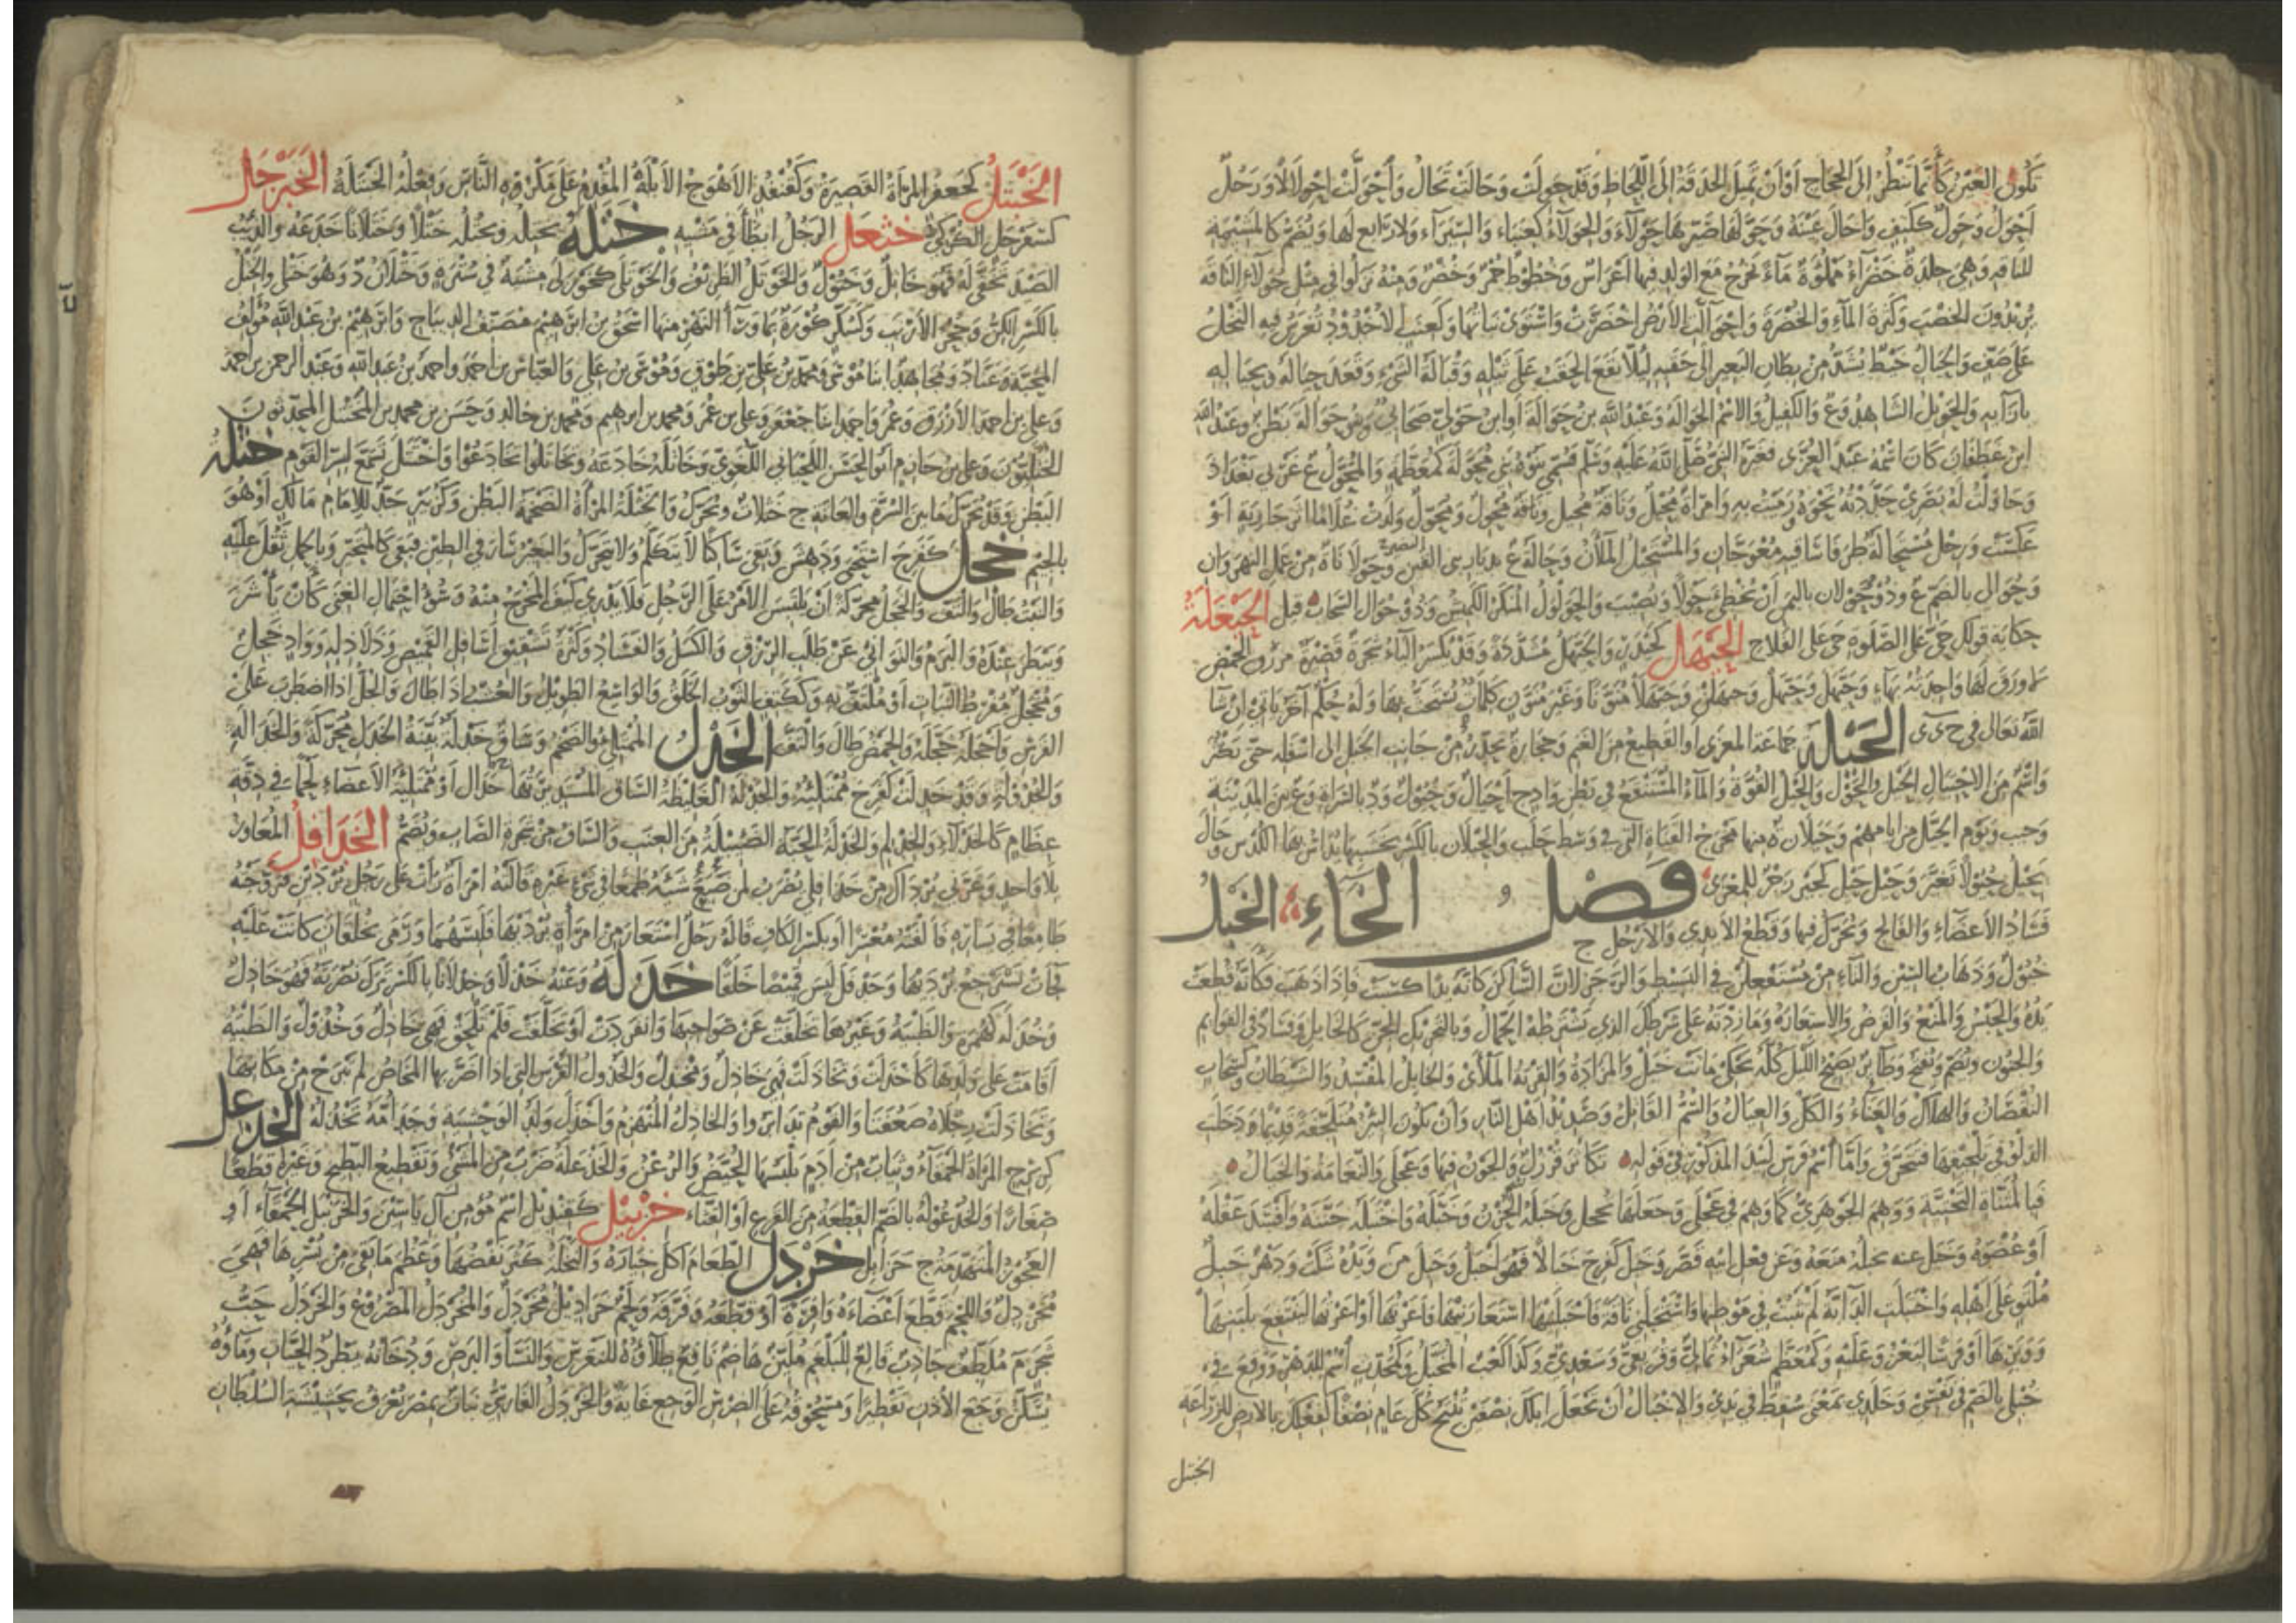 تكون العين كأنما تنظر إلى الحجاج أو أن تميل الحدقة إلى اللحاظ وقد حولت وحالت تحال واحولت احولالا ورجل
أحول وحول ككتف وأحال عينه وحولها صيرها حولاء والحولاء كعنباء والسيراء ولا رابع لها وتضم كالمشيمة
للناقة وهي جلدة خضراء مملوءة ماء تخرج مع الولد فيها أغراس وخطوط حمر وخضر ومنه نزلوا في مثل حولاء الناقة
يريدون الخصب وكثرة الماء والخضرة واحوالت الأرض اخضرت واستوى نباتها وكعنب الأخدود تغرس فيه النخل
على صف والحيال خيط يشد من بطان البعير إلى حقبه لئلا يقع الحقب على ثيله وقبالة الشيء وقعد حياله وبحياله
بإزائه والحويل الشاهد وع والكفيل والاسم الحوالة وعبد الله بن حوالة أو ابن حولي صحابي وبنو حوالة بطن وعبد الله
ابن غطفان كان اسمه عبد العزى فغيره النبي صلى الله عليه وسلم فسمي بنوه بني محولة كمعظمة والمحول ع غربي بغداد
وحاولت له بصري حددته نحوه ورميت به وامرأة محيل وناقة محيل وناقة محول ومحول ولدت غلاما إثر جارية أو
عكست ورجل مستحالة طرفا ساقيه معوجان والمستحيل الملآن وحالة ع بديار بني القين وحولايا ة من عمل النهروان
وحوال بالضم ع وذو حولان باليمن أن تخطئ حولا وتصيب والحولول المنكر الكميش وذو حوال السحاب قيل الحيعلة
حكاية قولك حي على الصلوة حي على الفلاح الحيهل كحيدر والحيهل مشددة وقد يكسر الياء شجرة قصيرة من دق الحمض
لا ورق لها واحدته بهاء وحيهل وحيهل وحيهلن وحيهلا منونا وغير منون كلمات يستحث بها وله حكم آخر يأتي إن شاء
الله تعالى في ح ي ي الحيلة جماعة المعزى أو القطيع من الغنم وحجارة تحدر من جانب الجبل إلى أسفله حتى تكثر
واسم من الاحتيال الحيل والحول والحيل القوة والماء المستنقع في بطن واد ج أحيال وحيول ود بالسراة وع بين المدينة
وحيبر ويوم الحيل من أيامهم وحيلان ة منها مخرج القناة التي في وسط حلب والحيلان بالكسر خشبها يداس بها الكدس وحال
يحيل حيولا تغير وحيل حيل كجير زجر للمعزى فصل الخاء الخبل
فساد الأعضاء والفالج ويحرك فيهما وقطع الأيدي والأرجل ج
خبول وذهاب السين والتاء من مستفعلن في البسيط والرجز لأن الساكن كأنه يد السبب فإذا ذهب فكأنه قطعت
يده والحبس والمنع والقرض والاستعارة وما زدته على شرطك الذي يشترطه الجمال وبالتحريك الجن كالخابل وفساد في القوائم
والجنون ويضم ويفتح وطائر يصيح الليل كله يحكي ماتت خبل والمزادة والقربة الملأى والخابل المفسد والشيطان وكسحاب
النقصان والهلاك والعناء والكل والعيال والسم القاتل وصديد أهل النار وأن تكون البئر متلجفة فربما دخلت
الدلو في تلجيفها فتخرق وأما اسم فرس لبيد المذكور في قوله تكاثر قرزل والجون فيها وعجلى والنعامة والخيال
فبالمثناة التحتية ووهم الجوهري كما وهم في عجلى وجعلها تحجل وخبله الحزن وخبله واختبله جننه وأفسد عقله
أو عضوه وخبله عنه يخبله منعه وعن فعل أبيه قصر وخبل كفرح خبالا فهو أخبل وخبل من وبده شلت ودهر خبل
ملتو على أهله واختبلت الدابة لم تثبت في موطنها واستخبلني ناقة فأخبلتها استعارنيها فأعرتها أو أعرتها لينتفع بلبنها
ووبرها أو فرسا ليغزو عليه وكمعظم شعراء ثمالي وقريعي وسعدي وكذا كعب المخبل وكمحدث اسم للدهر ووقع في
خبلي بالضم في نفسي وخلدي بمعنى سقط في يدي والإخبال أن تجعل إبلك نصفين تنتج كل عام نصفا كفعلك بالأرض للزراعة
الخبتل
الخبتل كجعفر المرأة القصيرة وكقنفذ الأهوج الأبله المقدم على مكروه الناس وفعله الخبتلة الخبرجل
كسفرجل الكركي خثعل الرجل أبطأ في مشيه ختله يختله ويختله ختلا وختلانا خدعه والذئب
الصيد تخفى له فهو خاتل وختول والخوتل الظريف والخوتلى كخوزلى مشية في سترة وختلان د وهو ختلي والختل
بالكسر الكن وجحر الأرنب وكسكر كورة بما وراء النهر منها إسحق بن إبرهيم مصنف الديباج وإبرهيم بن عبد الله مؤلف
المحبة وعباد ومجاهد ابنا موسى ومحمد بن علي بن طوق وموسى بن علي والعباس بن أحمد وأحمد بن عبد الله وعبد الرحمن بن أحمد
وعلي بن أحمد الأزرق وعمر وأحمد ابنا جعفر وعلي بن عمر ومحمد بن إبرهيم ومحمد بن خالد وحسن بن محمد بن الختل المحدثون
الختليون وعلي بن حازم أبو الحسن اللحياني اللغوي وخاتله خادعه وتخاتلوا تخادعوا واختتل تسمع لسر القوم خثلة
البطن وقد تحرك ما بين السرة والعانة ج خثلات ويحرك والخثلة المرأة الضخمة البطن وكزبير جد للإمام مالك أو هو
بالجيم خجل كفرح استحيى ودهش وبقي ساكتا لا يتكلم ولا يتحرك والبعير سار في الطين فبقي كالمتحير وبالحمل ثقل عليه
والنبت طال والتف والخجل محركة أن يلتبس الأمر على الرجل فلا يدري كيف المخرج منه وسوء احتمال الغنى كأن يأشر
ويبطر عنده والبرم والتواني عن طلب الرزق والكسل والفساد وكثرة تشقيق أسافل القميص وذلاذله وواد خجل
ومخجل مفرط النبات أو ملتف به وككتف الثوب الخلق والواسع الطويل والعشب إذا طال والجل إذا اضطرب على
الفرس وأخجله خجله والحمض طال والتف الخدل الممتلئ والضخم وساق خدلة بينة الخدل محركة والخدالة
والخدولة وقد خدلت كفرح ممتلئة والخدلة الغليظة الساق المستديرتها ج خدال أو ممتلئة الأعضاء لحما في دقة
عظام كالخدلاء والخدلم والخدلة الحبة الضئيلة من العنب والساق من شجرة الصاب وتضم الخدافل المعاوز
بلا واحد وغرني برداك من خدافلي يضرب لمن ضيع شيئه طمعا في شيء غيره قالته امرأة رأت على رجل بردين فتزوجته
طامعة في يساره فألفته معسرا أو بكسر الكاف قاله رجل استعار من امرأة برديها فلبسهما ورمى بخلقان كانت عليه
فجاءت تسترجع برديها وخدفل لبس قميصا خلقا خذله وعنه خذلا وخذلانا بالكسر ترك نصرته فهو خاذل
وخذلة كهمزة والظبية وغيرها تخلفت عن صواحبها وانفردت أو تخلفت فلم تلحق فهي خاذل وخذول والظبية
أقامت على ولدها كأخذلت وتخاذلت فهي خاذل ومخذل والخذول الفرس التي إذا أضر بها المخاض لم تبرح من مكانها
وتخاذلت رجلاه ضعفتا والقوم تدابروا والخاذل المنهزم وأخذل ولد الوحشية وجد أمه تخذله الخذعل
كزبرج المرأة الحمقاء وثياب من أدم يلبسها الحيض والرعن والخذعلة ضرب من المشي وتقطيع البطيخ وغيره قطعا
صغارا والخذعولة بالضم القطعة من القرع أو القثاء خربيل كقنديل اسم مؤمن آل ياسين والخربيل الحمقاء أو
العجوز المتهدمة ج خرابل خردل الطعام أكل خياره والنخلة كثر نفضها وعظم ما بقي من بسرها فهي
مخردل واللحم قطع أعضاءه وافرة أو قطعه وفرقه ولحم خراديل مخردل والمخردل المصروع والخردل حب
شجر م ملطف جاذب قالع للبلغم ملين هاضم نافع طلاؤه للنقرس والنسا والبرص ودخانه يطرد الحيات وماؤه
يسكن وجع الآذان تقطيرا ومسحوقه على الضرس الوجع غاية والخردل الفارسي نبات بمصر يعرف بحشيشة السلطان